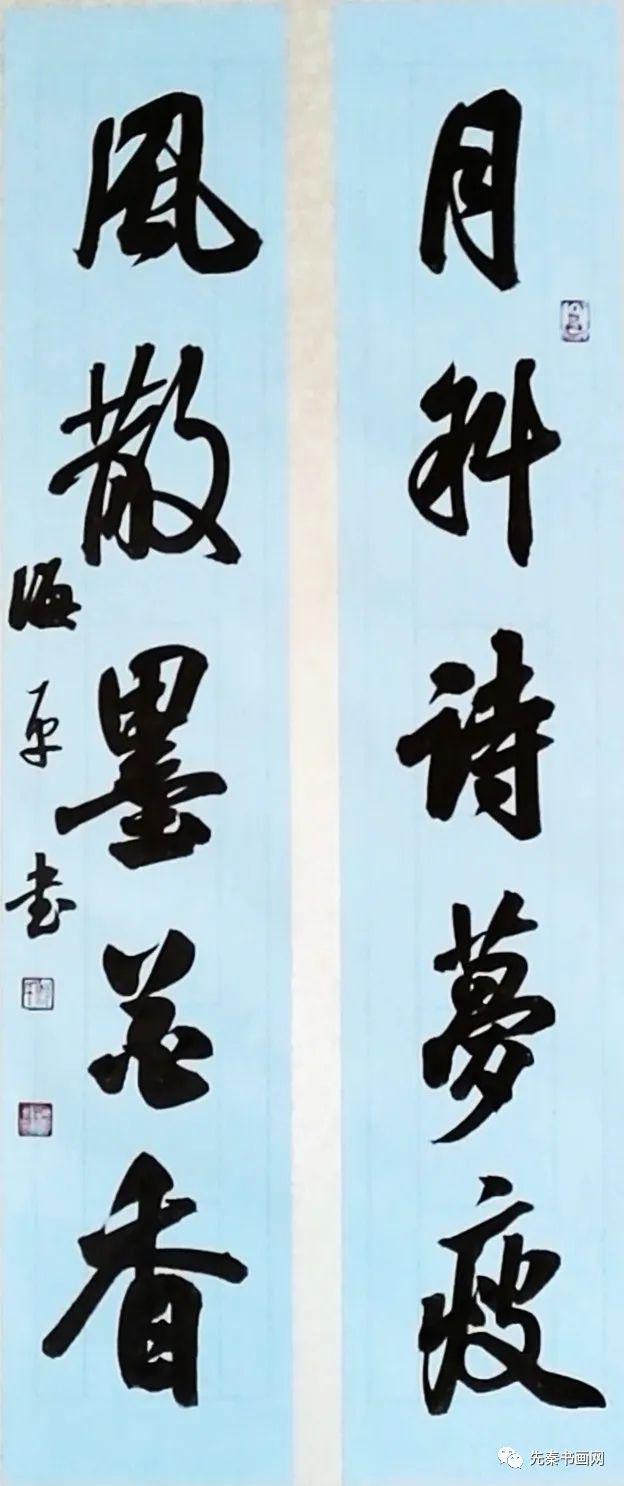 月斜詩夢瘦
風散墨花香
海平书
先秦书画网